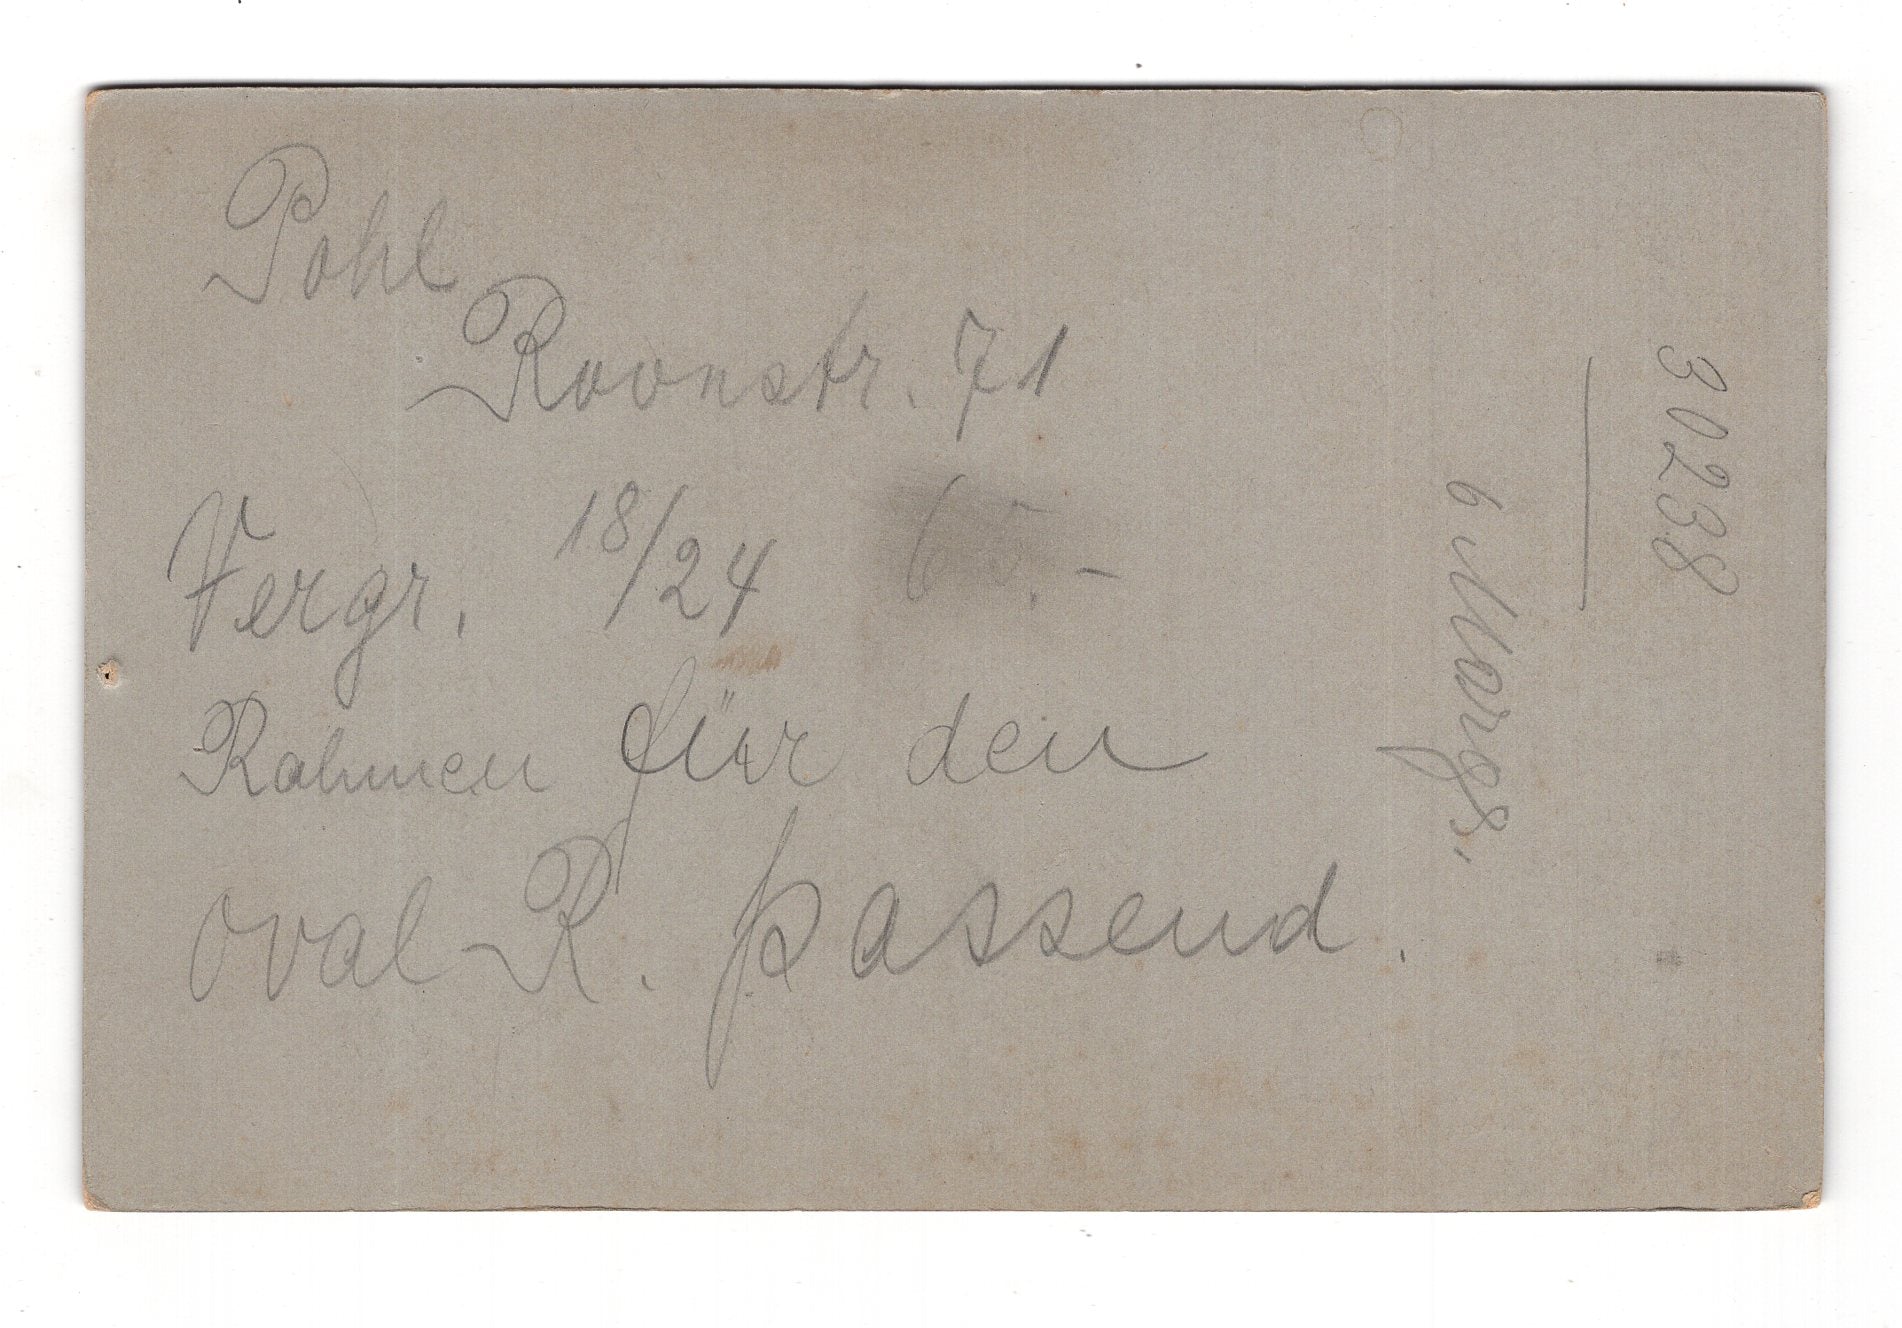 Pohl
Roonstr. 71
Vergr. 18/24 65.-
Rahmen für den
oval R. passend.
30238
6